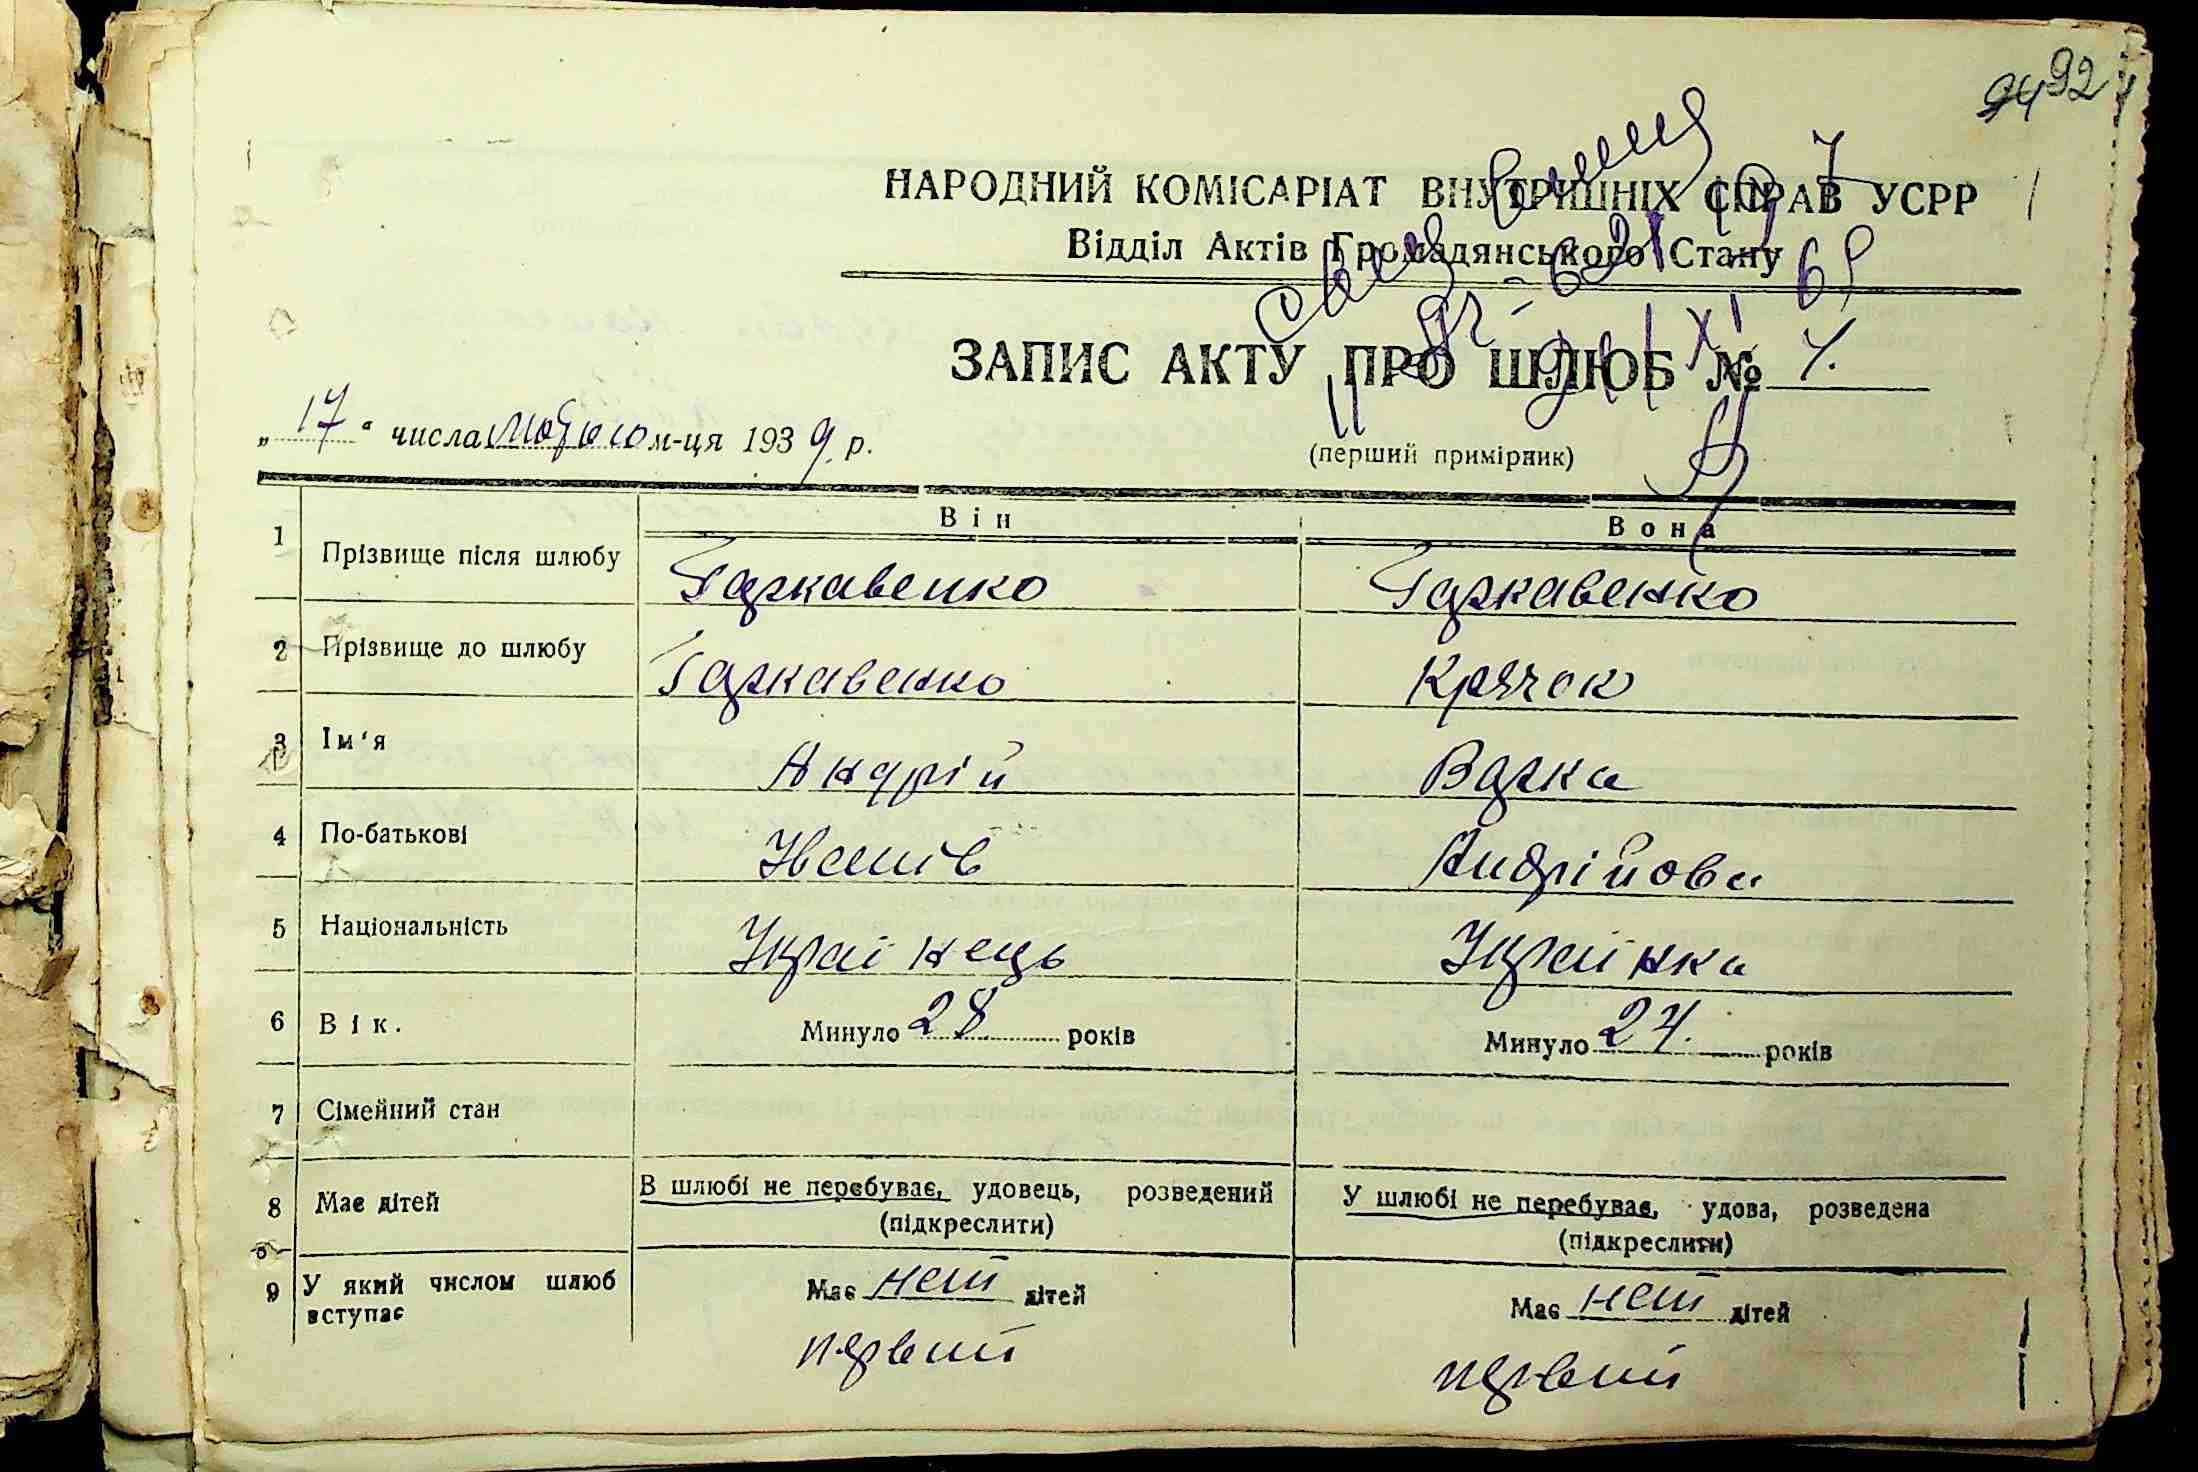 94 92
НАРОДНИЙ КОМІСАРІАТ ВНУТРІШНІХ СПРАВ УСРР
Відділ Актів Громадянського Стану
ЗАПИС АКТУ ПРО ШЛЮБ № 7.
„17“ числа лютого м-ця 1939 р.
(перший примірник)
Він Вона
1 Прізвище після шлюбу Гаркавенко Гаркавенко
2 Прізвище до шлюбу Гаркавенко Крячок
3 Ім'я Андрій Варка
4 По-батькові Іванів Андрійова
5 Національність Українець Українка
6 Вік. Минуло 28 років Минуло 24. років
7 Сімейний стан
8 Має дітей В шлюбі не перебуває, удовець, розведений У шлюбі не перебуває, удова, розведена
(підкреслити) (підкреслити)
9 У який числом шлюб вступає Має нет дітей Має нет дітей
первий первий